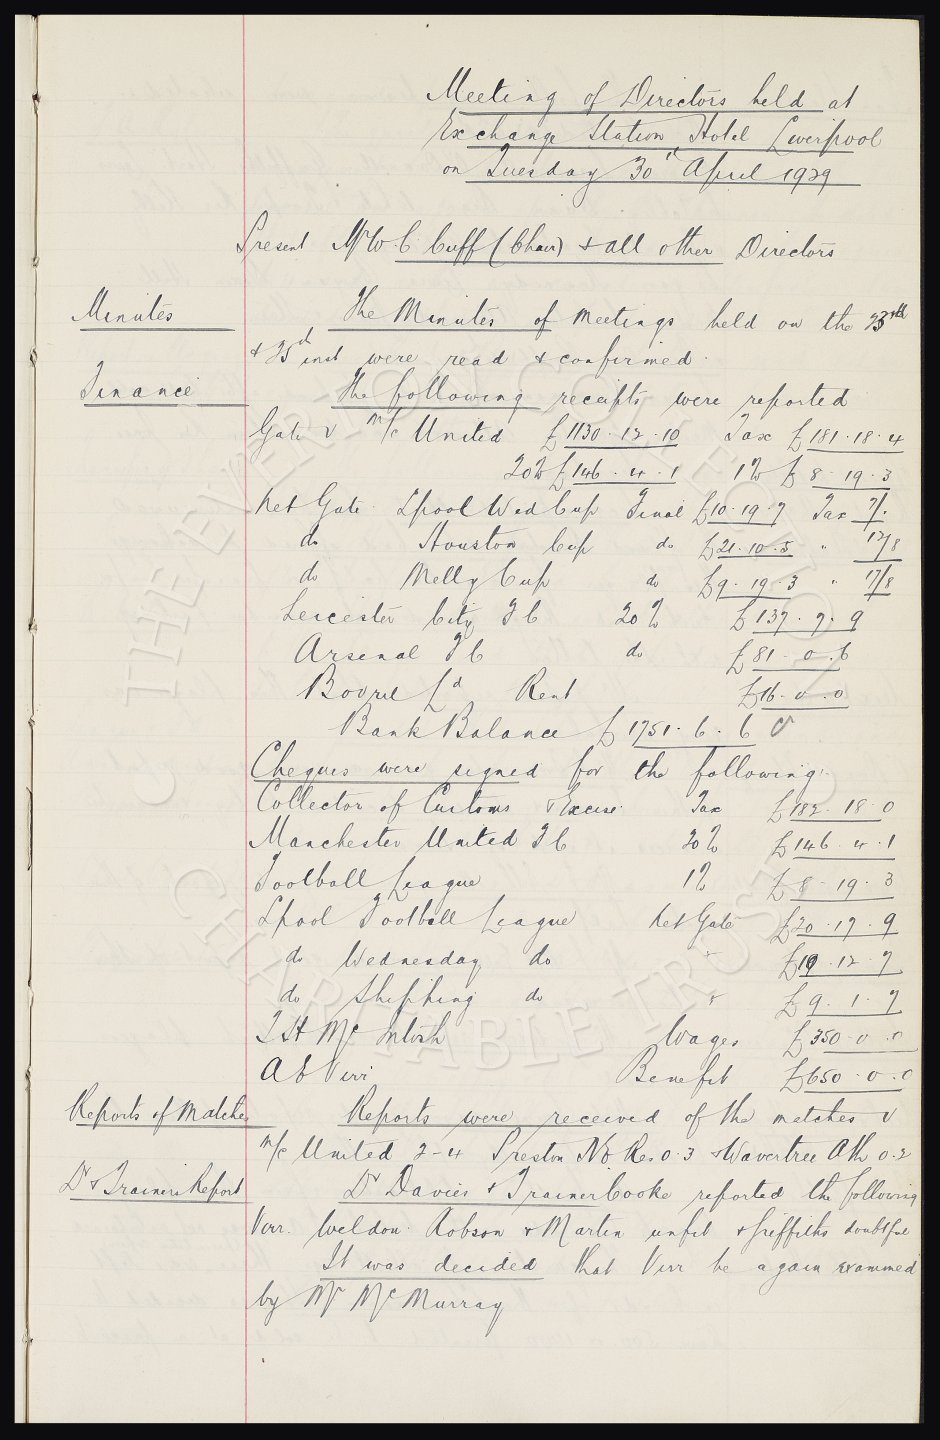 Meeting of Directors held at
Exchange Station Hotel Liverpool
on Tuesday 30th April 1929
Present Mr W.C. Cuff (Chair) & all other Directors
Minutes The Minutes of meetings held on the 23rd
& 25th inst were read & confirmed.
Finance The following receipts were reported
Gate v M/c United £1130.12.10 Tax £181.18.4
20% £146.4.1 1% £8.19.3
Net Gate Lpool Wed Cup Final £10.19.7 Tax 7/.
do Houston Cup do £21.10.5 " 17/8
do Melly Cup do £9.19.3 " 17/8
Leicester City F C 20% £137.7.9
Arsenal F C do £81.0.6
Bovril Ld Rent £16.0.0
Bank Balance £1751.6.6
Cheques were signed for the following:-
Collector of Customs & Excise Tax £182.18.0
Manchester United F C 20% £146.4.1
Football League 1% £8.19.3
Lpool Football League Net Gate £20.17.9
do Wednesday do " £10.12.7
do Shipping do " £9.1.7
T H McIntosh Wages £350.0.0
A C Virr Benefit £650.0.0
Reports of Matches Reports were received of the matches v
M/c United 2-4 Preston N E Res 0.3 & Wavertree Ath 0.2
Dr & Trainers Report Dr Davies & Trainer Cooke reported the following
Virr. Weldon. Robson & Martin unfit & Griffiths doubtful
It was decided that Virr be again examined
by Mr McMurray
© THE EVERTON COLLECTION
CHARITABLE TRUST